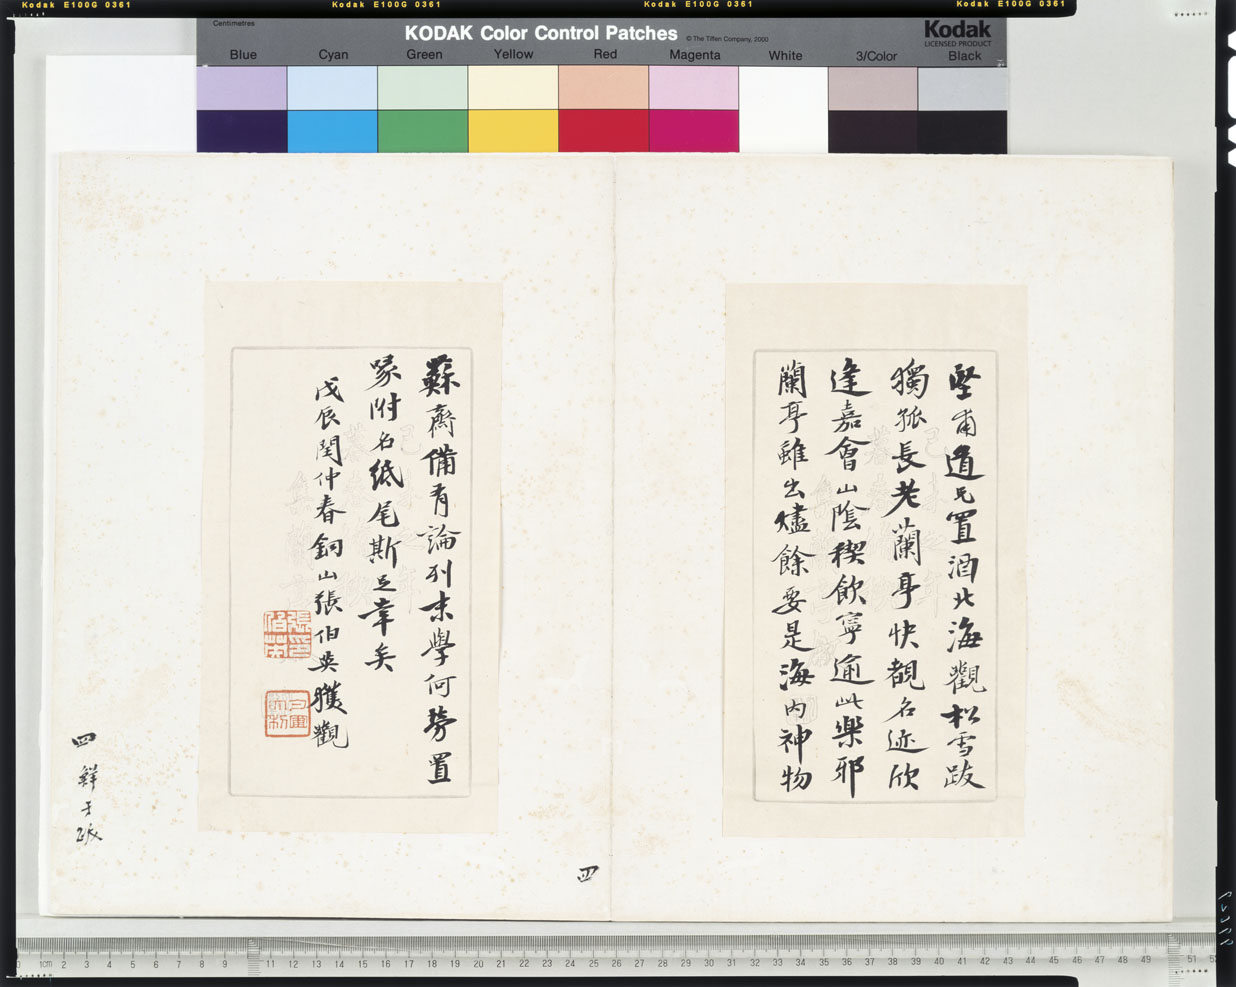 Kodak E100G 0361 Kodak E100G 0361 Kodak E100G 0361 Kodak E100G 0361
Centimetres
KODAK Color Control Patches
© The Tiffen Company, 2000
Kodak
LICENSED PRODUCT
Blue Cyan Green Yellow Red Magenta White 3/Color Black
堅甫道兄置酒北海觀松雪跋
獨孤長老蘭亭快覩名迹欣
逢嘉會山陰稧飲寧逾此樂邪
蘭亭雖出燼餘要是海內神物
蘇齋備有論列末學何勞置
喙附名紙尾斯足幸矣
戊辰閏仲春銅山張伯英獲觀
張伯英印
四
鮮于跋
四
1cm 2 3 4 5 6 7 8 9 11 12 13 14 15 16 17 18 19 20 21 22 23 24 25 26 27 28 29 30 31 32 33 34 35 36 37 38 39 40 41 42 43 44 45 46 47 48 49 51